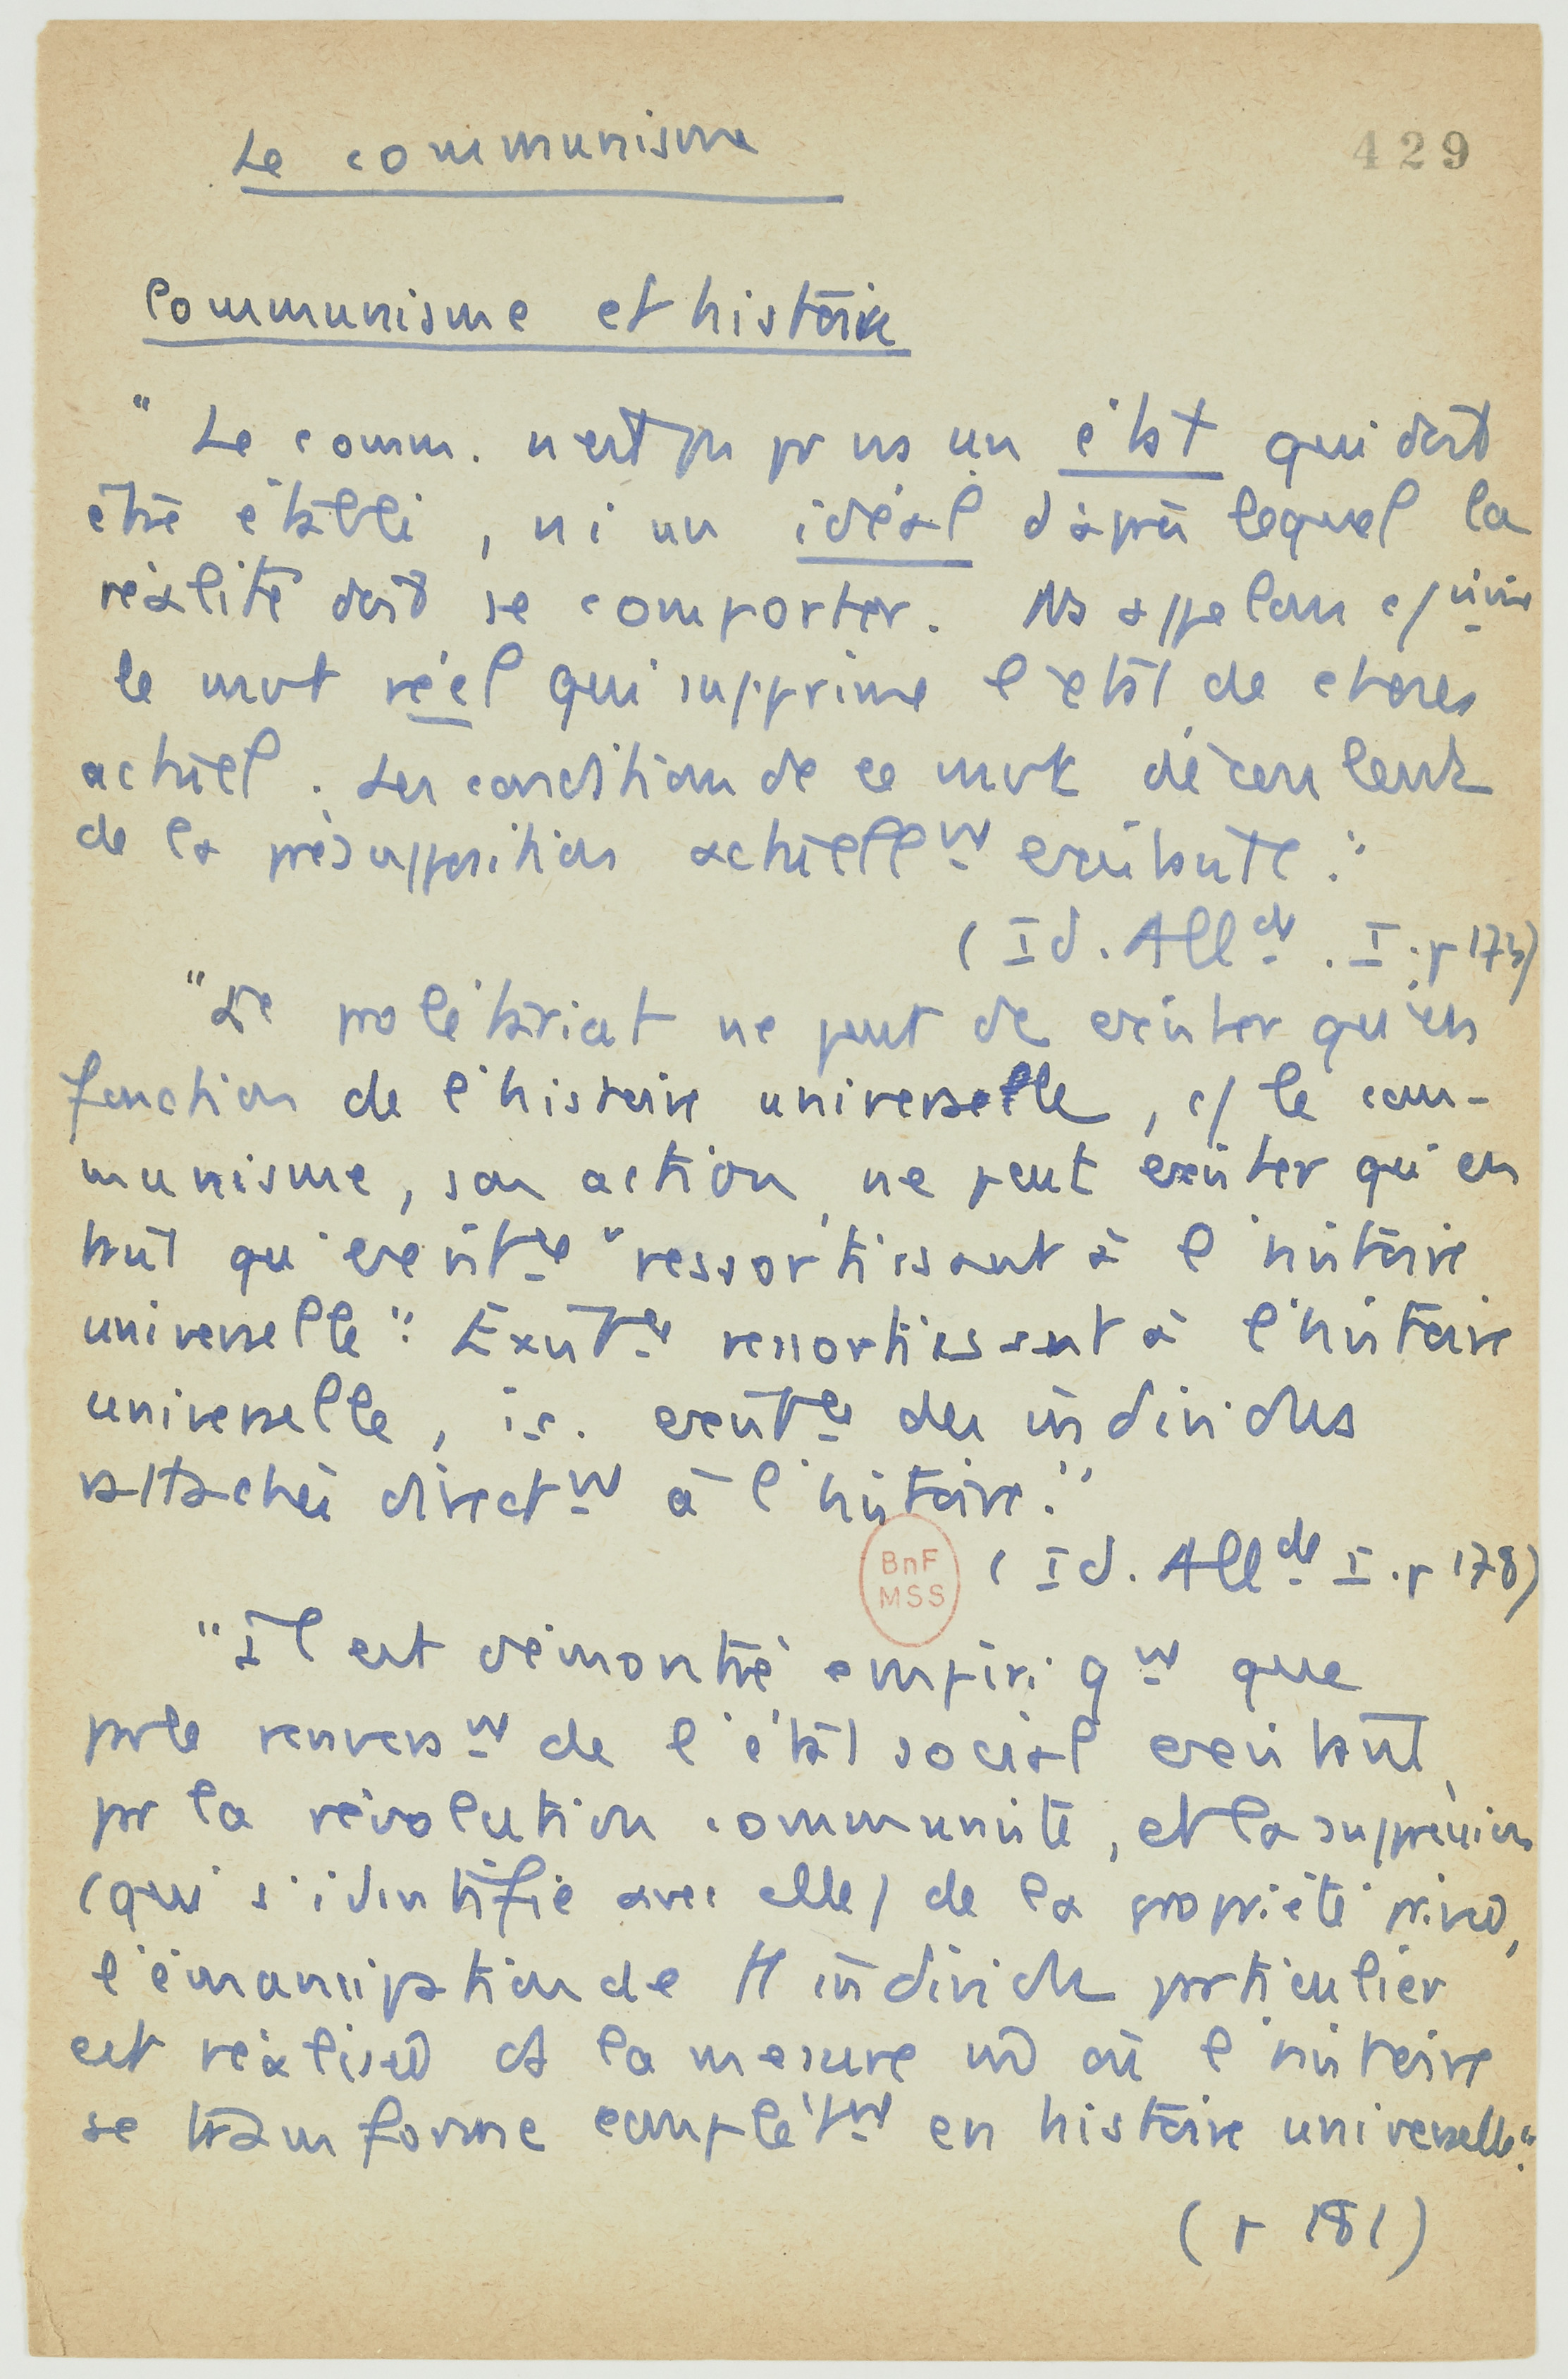 429
Le communisme
Communisme et histoire
" Le comm. n'est pas pr ns un état qui doit
être établi, ni un idéal d'après lequel la
réalité doit se comporter. Ns appelons c/
le mvt réel qui supprime l'état de choses
actuel. Les conditions de ce mvt découlent
de la présupposition actuellem existante."
( Id. Allde . I. p 175)
"Le prolétariat ne peut dc exister qu'en
fonction de l'histoire universelle, c/ le com-
munisme, son action, ne peut exister qu'en
tant qu'existce "ressortissant à l'histoire
universelle". Existce ressortissant à l'histoire
universelle, i.e. existce des individus
rattachée directm à l'histoire."
BnF
MSS
( Id. Allde I. p 178)
"Il est démontré empiriqm que
pr le renversm de l'état social existant,
pr la révolution communiste, et la suppression
(qui s'identifie avec elle) de la propriété privée,
l'émancipation de tt individu particulier
est réalisée ds la mesure où l'histoire
se transforme complètm en histoire universelle."
( p 181)